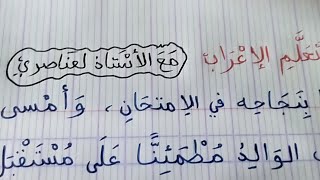 تَعَلَّمِ الإِعْرَابَ مَعَ الأُسْتَاذِ لعناصري
بِنَجَاحِهِ فِي الاِمتحَانِ، وَأَمْسى
الوَالِدُ مُطْمَئِنًّا عَلَى مُسْتَقْبَلِ